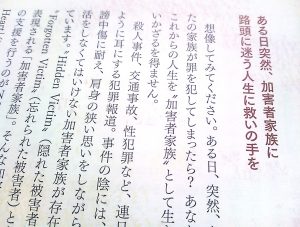 ある日突然、加害者家族に
路頭に迷う人生に救いの手を
想像してみてください。ある日、突然、
たの家族が罪を犯してしまったら？ あな
これからの人生を〝加害者家族〟として生
いかざるを得ません。
殺人事件、交通事故、性犯罪など、連日
ように耳にする犯罪報道。事件の陰には、
謗中傷に耐え、肩身の狭い思いをしながら
活をしなくてはいけない加害者家族が存在
ています。"Hidden Victim"（隠れた被害者
"Forgotten Victim"（忘れられた被害者）と
表現される「加害者家族」。そんな加害
の支援を行うのが
Heart